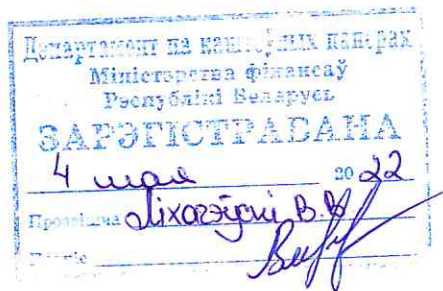 Дэпартамент па каштоўных паперах
Міністэрства фінансаў
Рэспублікі Беларусь
ЗАРЭГІСТРАВАНА
4 мая 2022
Прозвішча Ліхачэўскі В.В